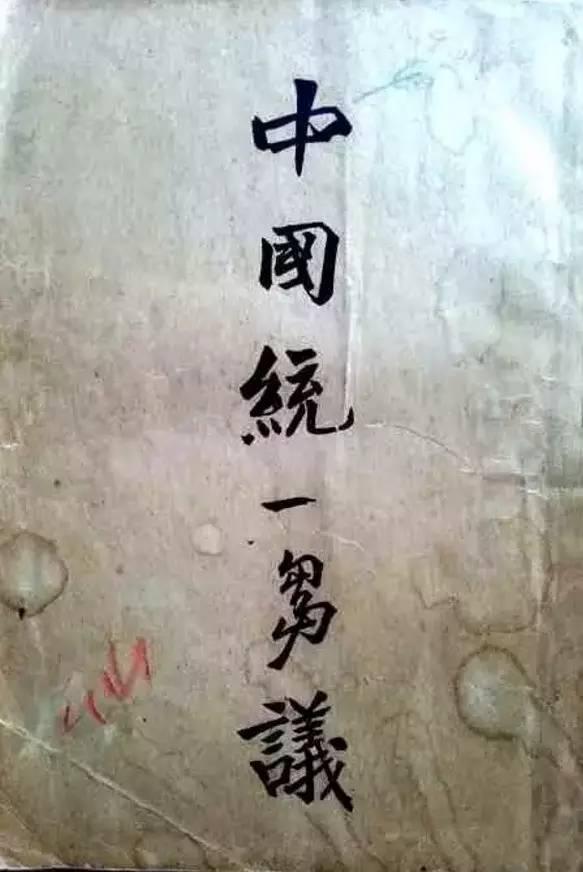 中國統一芻議